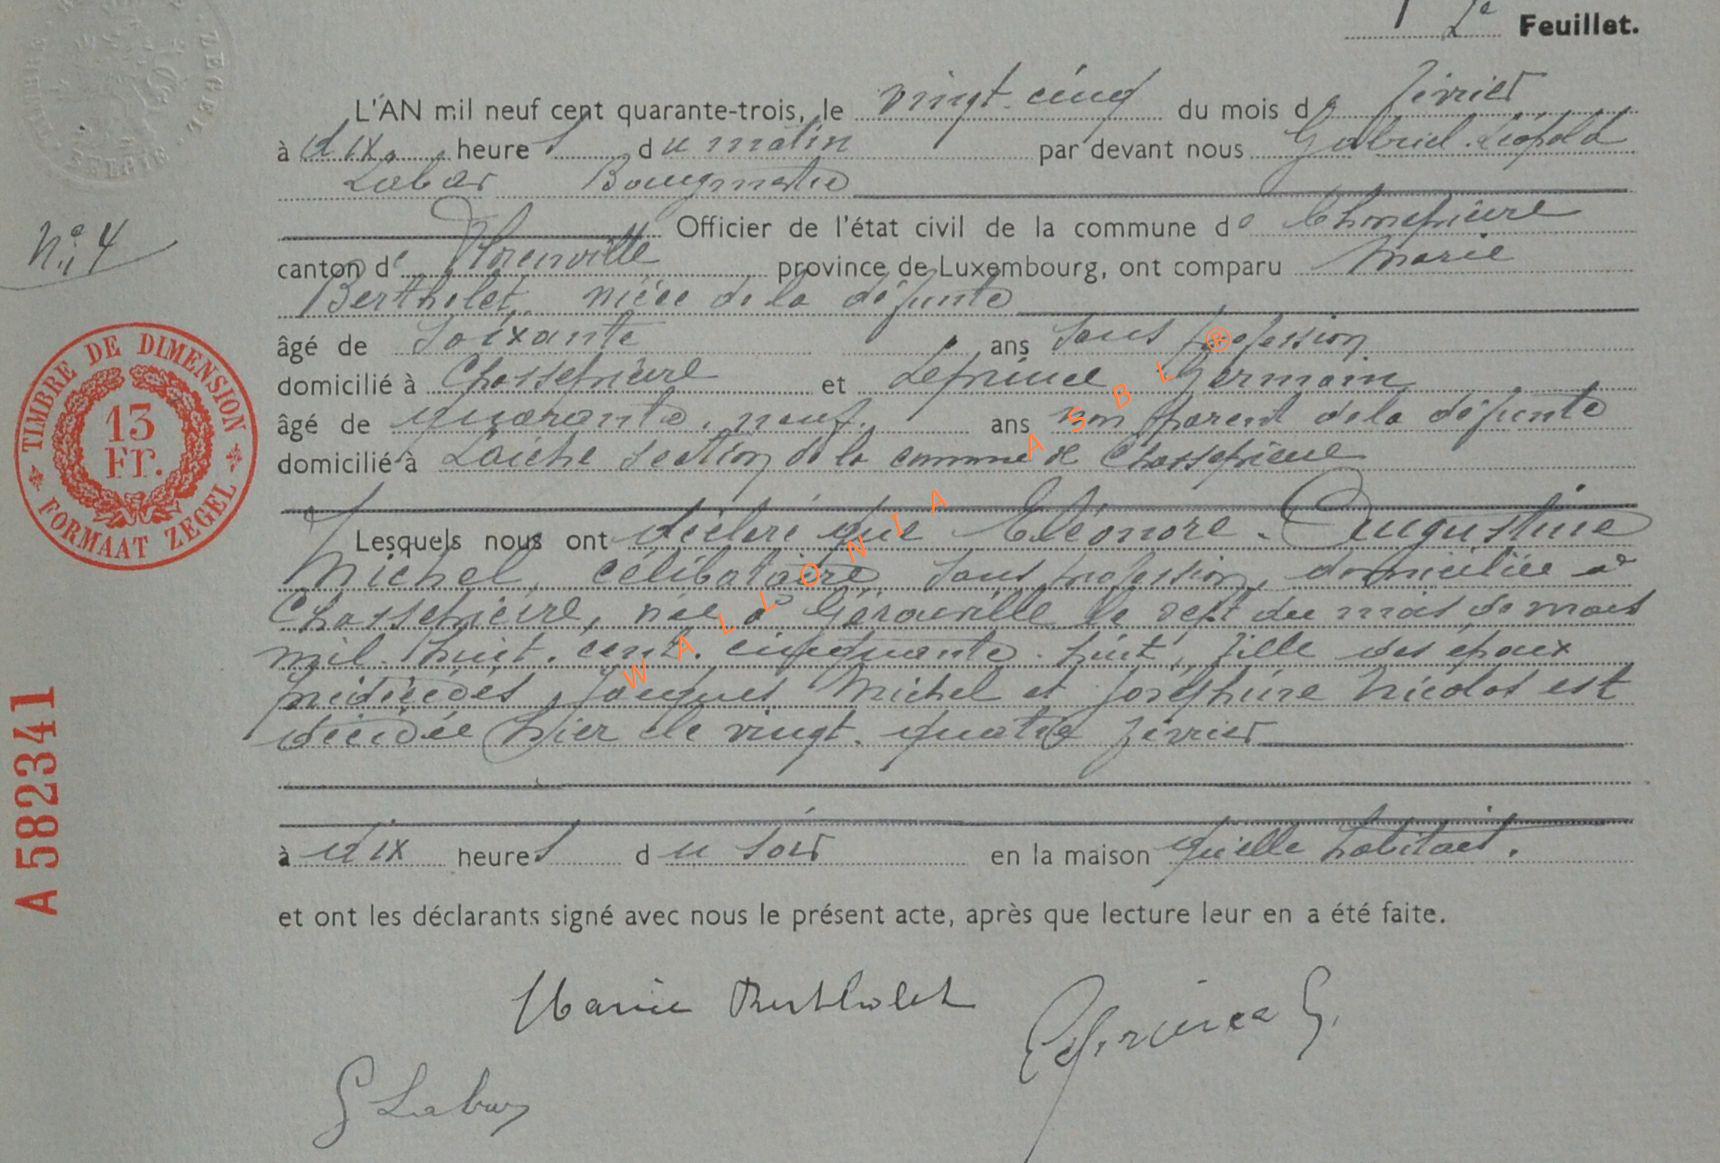 2e Feuillet.
L'AN mil neuf cent quarante-trois, le vingt-cinq du mois de février
à dix heures du matin par devant nous Gabriel Léopold
Labar Bourgmestre
Officier de l'état civil de la commune de Chassepierre
N° 4
canton de Florenville province de Luxembourg, ont comparu Marie
Bertholet, nièce de la défunte
âgé de soixante ans sans profession
domicilié à Chassepierre et Leprince Germain
âgé de quarante-neuf ans non parent de la défunte
domicilié à Laiche section de la commune de Chassepierre
Lesquels nous ont déclaré que Eléonore-Augustine
Michel, célibataire sans profession, domiciliée à
Chassepierre, née à Gérouville le sept du mois de mars
mil-huit-cent-cinquante-huit, fille des époux
prédécédés, Jacques Michel et Joséphine Nicolas est
décédée hier le vingt-quatre février
à dix heures du soir en la maison qu'elle habitait.
et ont les déclarants signé avec nous le présent acte, après que lecture leur en a été faite.
Marie Bertholet
Leprince G.
G Labar
TIMBRE DE DIMENSION
13
FR.
FORMAAT ZEGEL
A 582341
BELGIE ZEGEL
WALLONIA ASBL ®